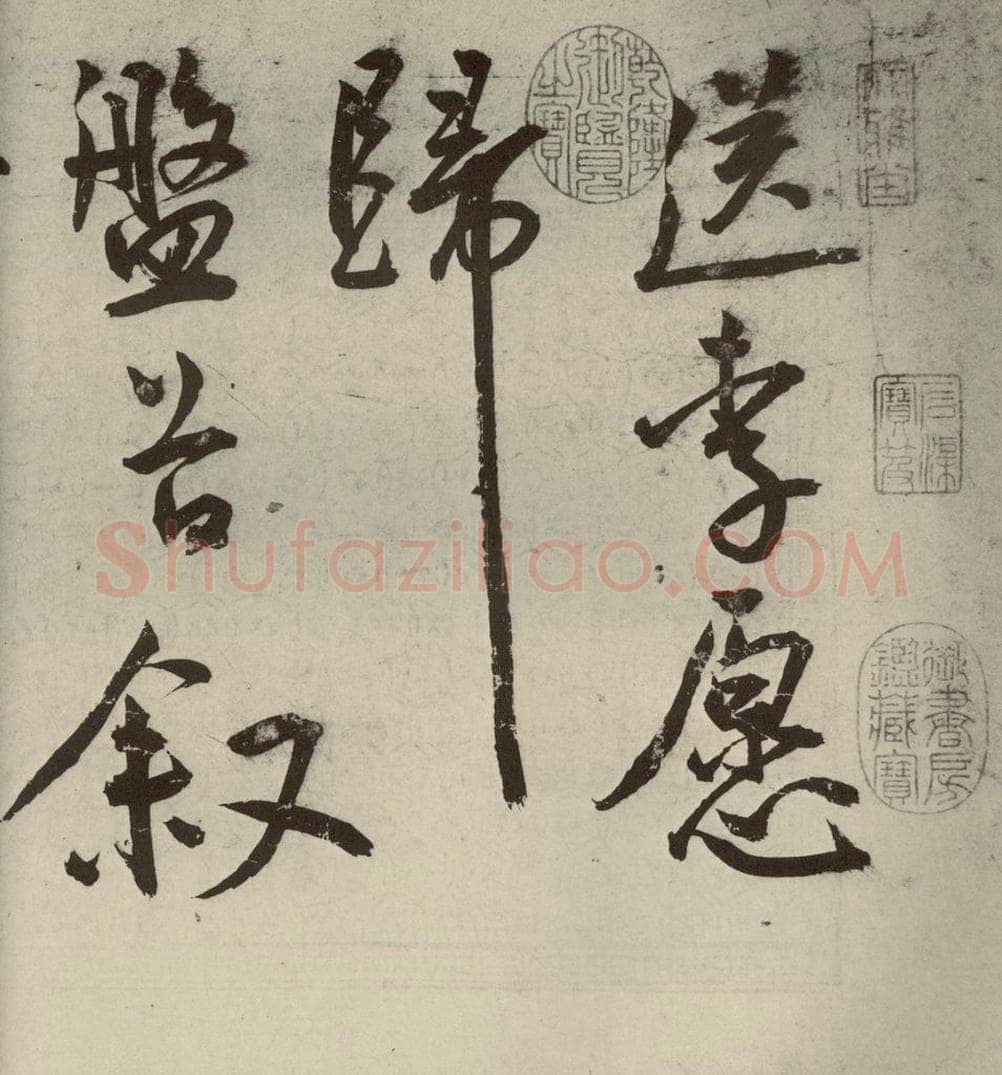 送李愿
歸
盤谷敘
乾隆
御覽
之寶
石渠
寶笈
御書房
鑑藏寶
Shufaziliao.COM